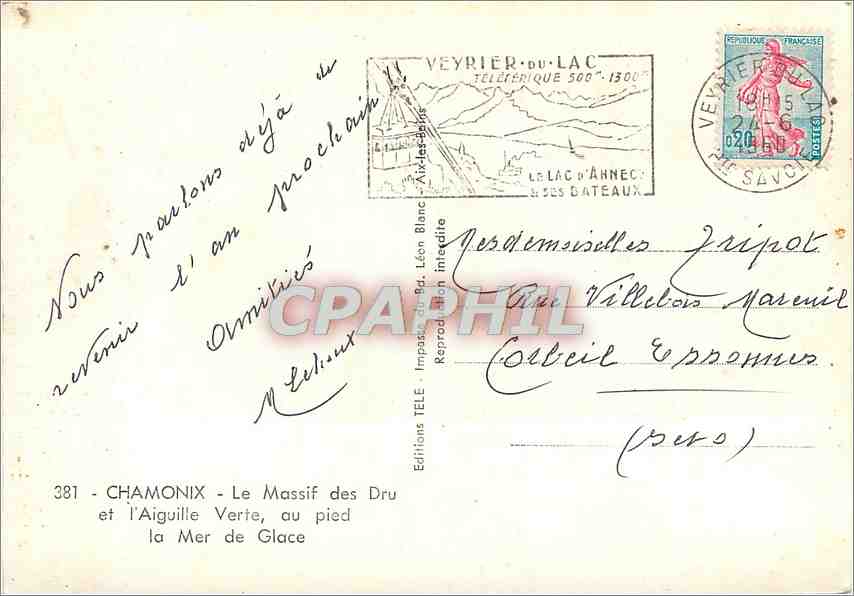 VEYRIER-DU-LAC
TÉLÉFÉRIQUE 500m-1300m
LE LAC D'ANNECY
& SES BATEAUX
REPUBLIQUE FRANÇAISE
0,20
POSTES
VEYRIER-DU-LAC
18H15
24-6
1960
Hte SAVOIE
Nous parlons déjà de
revenir l'an prochain!!
Amitiés
381 - CHAMONIX - Le Massif des Dru
et l'Aiguille Verte, au pied
la Mer de Glace
Editions TELE - Impasse du Bd. Léon Blanc - Aix-les-Bains
Reproduction interdite
Mesdemoiselles Tripot
Rue Villebois Mareuil
Corbeil Essonnes
(S et O)
CPAPHIL